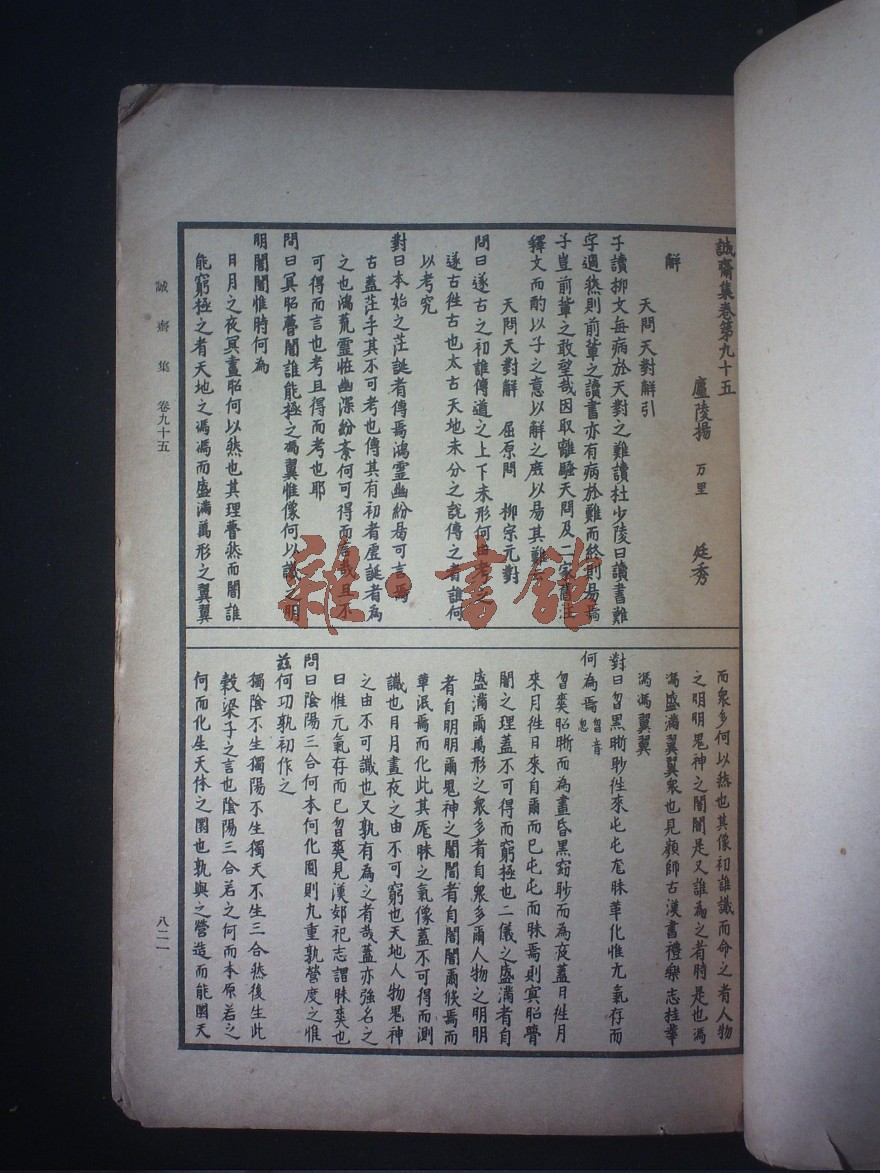 誠齋集卷第九十五
廬陵揚 万里 廷秀
解
天問天對解引
予讀柳文每病於天對之難讀杜少陵曰讀書難
字過然則前輩之讀書亦有病於難而終則易焉
子豈前輩之敢望哉因取離騷天問及二家舊注
釋文而酌以予之意以解之庶以易其難云
天問天對解 屈原問 柳宗元對
問曰遂古之初誰傳道之上下未形何由考之
遂古徃古也太古天地未分之説傳之者誰何
以考究
對曰本始之茫誕者傳焉鴻靈幽紛曷可言焉
古蓋茫乎其不可考也傳其有初者虛誕者為
之也鴻荒靈恠幽深紛紊何可得而言哉且不
可得而言也考且得而考也耶
問曰冥昭瞢闇誰能極之馮翼惟像何以識之明
明闇闇惟時何為
日月之夜冥晝昭何以然也其理瞢然而闇誰
能窮極之者天地之馮馮而盛滿萬形之翼翼
而衆多何以然也其像初誰識而命之者人物
之明明鬼神之闇闇是又誰為之者時是也馮
馮盛滿翼翼衆也見顔師古漢書禮樂志桂華
馮馮翼翼
對曰曶黑晰眇徃來屯屯厖昧革化惟元氣存而
何為焉曶音忽
曶奭昭晰而為晝昏黑窈眇而為夜蓋日徃月
來月徃日來自爾而已屯屯而昧焉則冥昭瞢
闇之理蓋不可得而窮極也二儀之盛滿者自
盛滿爾萬形之衆多者自衆多爾人物之明明
者自明明爾鬼神之闇闇者自闇闇爾倐焉而
革泯焉而化此其厖昧之氣像蓋不可得而測
識也日月晝夜之由不可窮也天地人物鬼神
之由不可識也又孰有為之者哉蓋亦強名之
曰惟元氣存而已曶奭見漢郊祀志謂昧爽也
問曰陰陽三合何本何化圜則九重孰營度之惟
茲何功孰初作之
獨陰不生獨陽不生獨天不生三合然後生此
穀梁子之言也陰陽三合若之何而本原若之
何而化生天体之圜也孰與之營造而能圜天
誠齋集 卷九十五
八二一
雜·書館